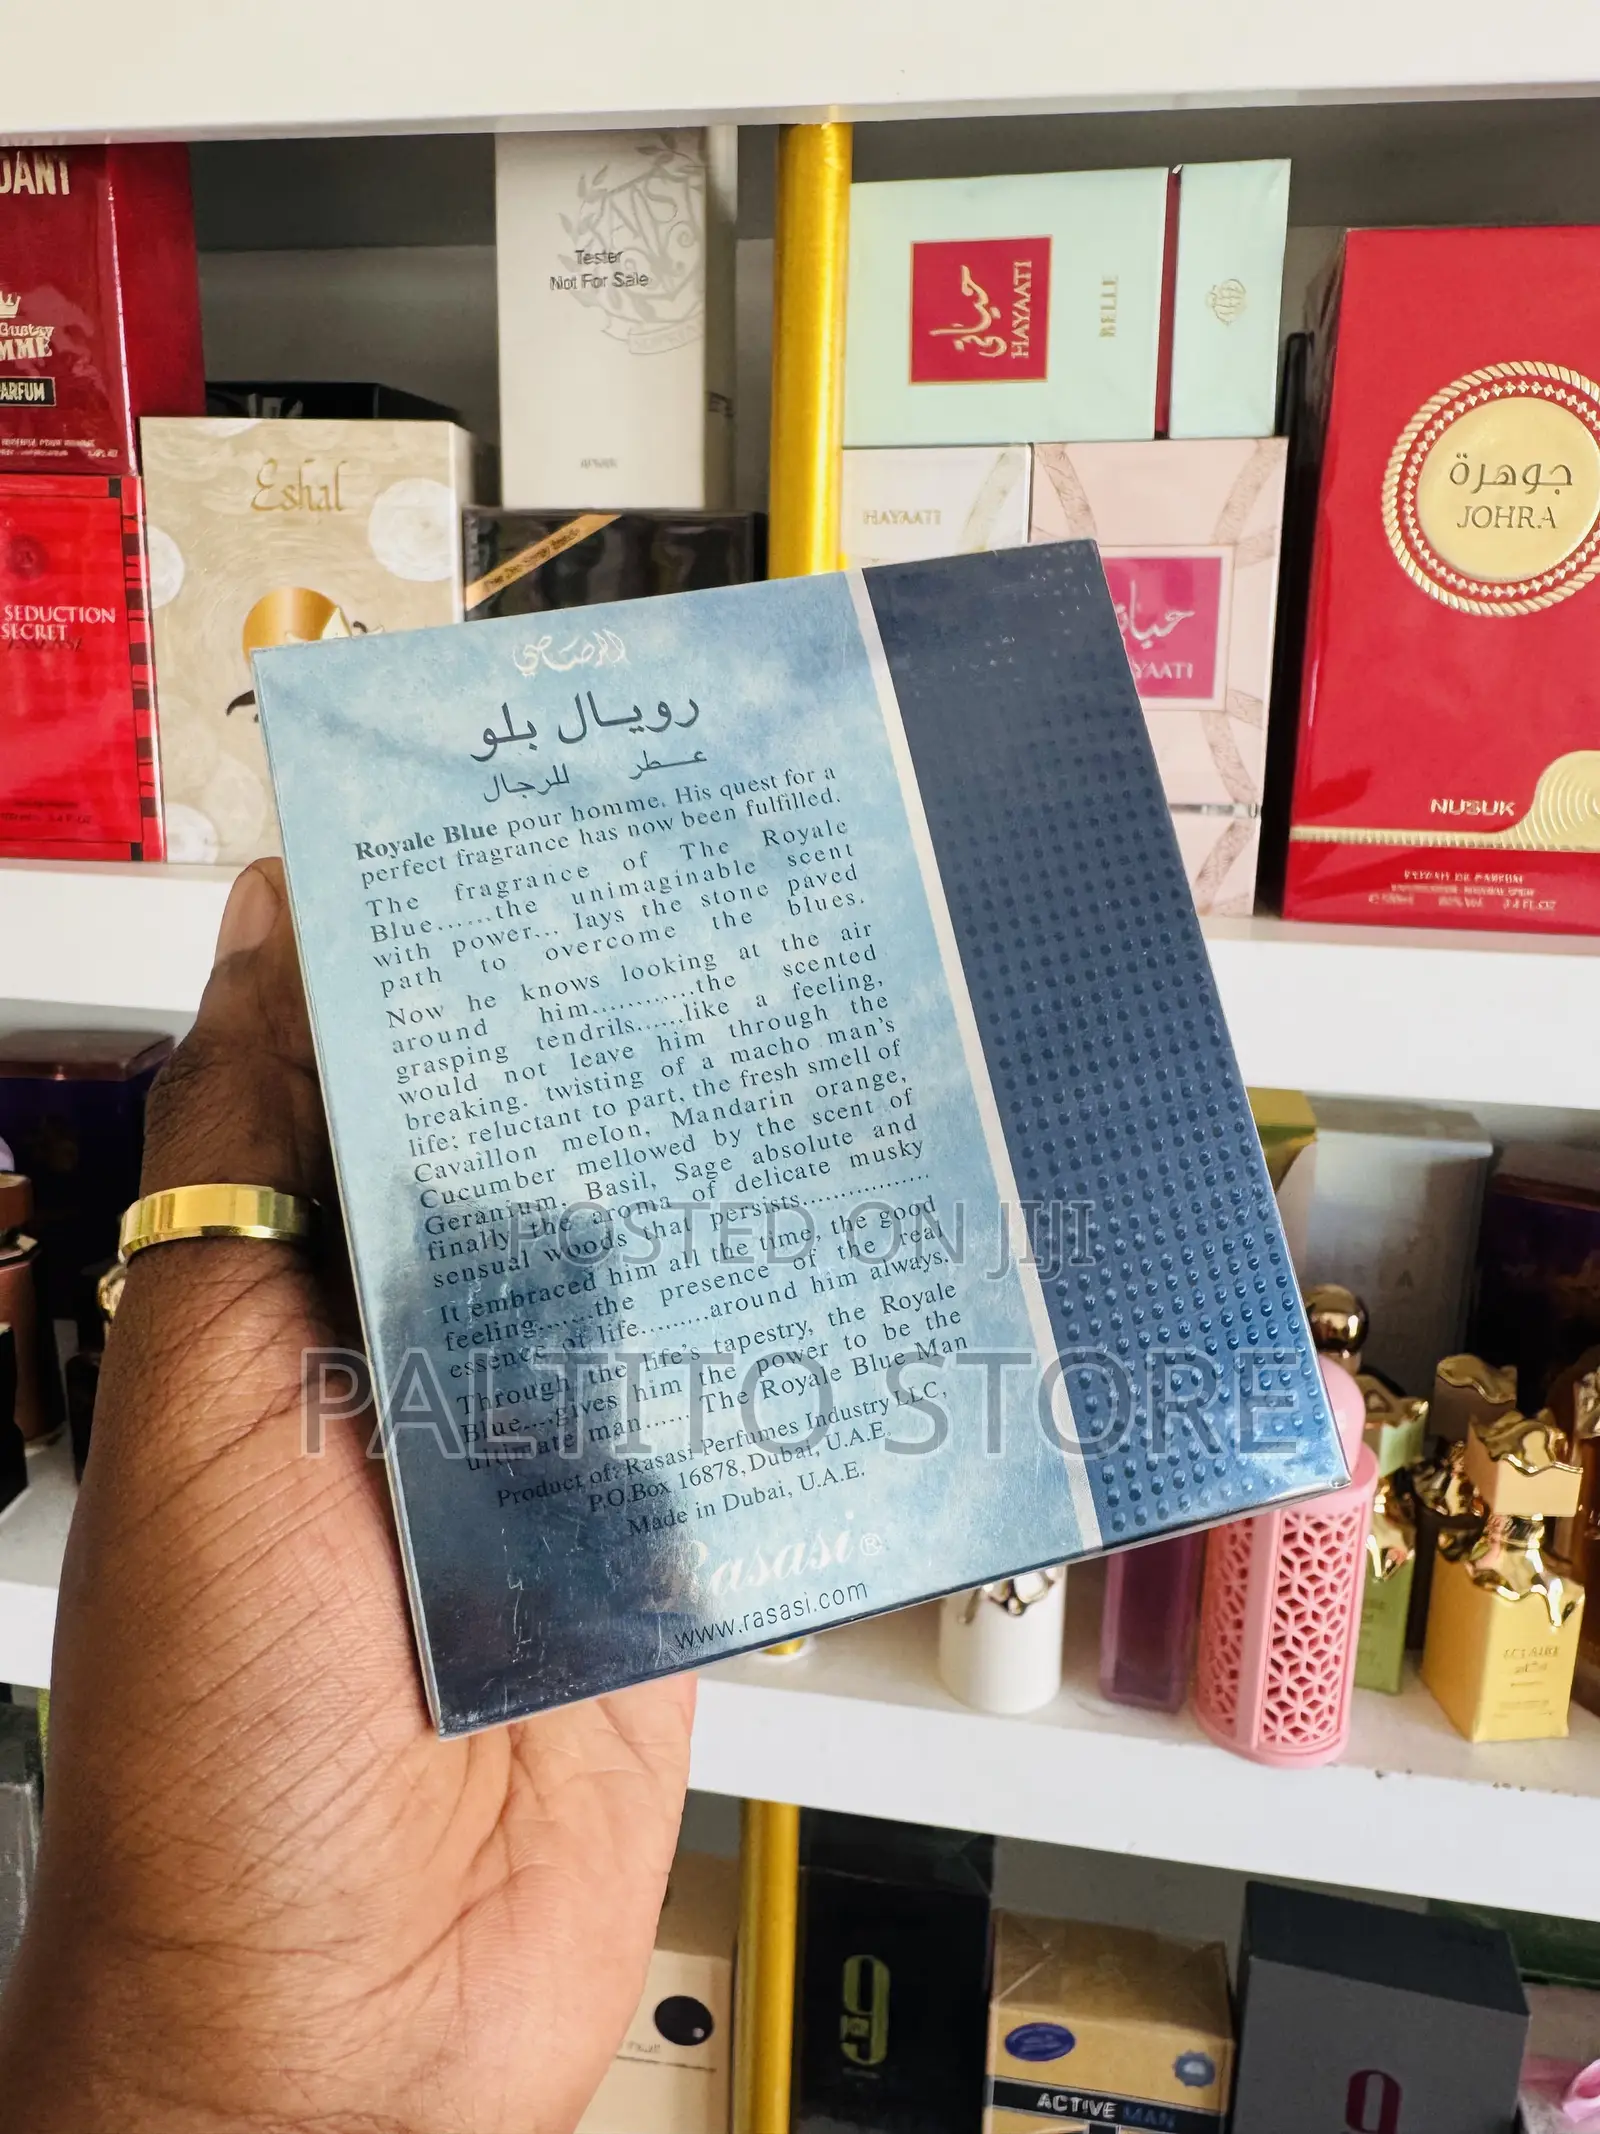 DANT
Gustav
MME
PARFUM
SEDUCTION
SECRET
Eshal
Tester
Not For Sale
حياتي
HAYAATI
BELLE
HAYAATI
جوهرة
JOHRA
NUSUK
EXTRAIT DE PARFUM
الرصاصي
رويال بلو
عطر للرجال
Royale Blue pour homme. His quest for a
perfect fragrance has now been fulfilled.
The fragrance of The Royale
Blue......the unimaginable scent
with power... lays the stone paved
path to overcome the blues.
Now he knows looking at the air
around him............the scented
grasping tendrils......like a feeling,
would not leave him through the
breaking. twisting of a macho man's
life; reluctant to part, the fresh smell of
Cavaillon melon, Mandarin orange,
Cucumber mellowed by the scent of
Geranium, Basil, Sage absolute and
finally the aroma of delicate musky
sensual woods that persists.................
It embraced him all the time, the good
feeling.......the presence of the real
essence of life.........around him always.
Through the life's tapestry, the Royale
Blue....gives him the power to be the
ultimate man....... The Royale Blue Man
Product of: Rasasi Perfumes Industry LLC,
P.O.Box 16878, Dubai, U.A.E.
Made in Dubai, U.A.E.
Rasasi®
www.rasasi.com
POSTED ON JIJI
PALTITO STORE
9
ACTIVE MAN
9